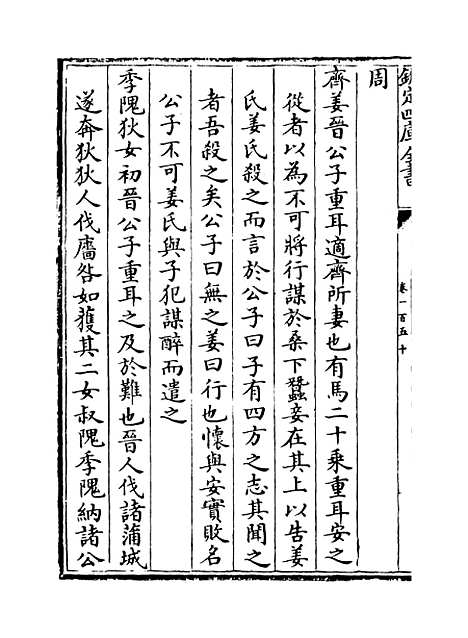 欽定四庫全書
卷一百五十
周
齊姜晉公子重耳適齊所妻也有馬二十乘重耳安之
從者以為不可將行謀於桑下蠶妾在其上以告姜
氏姜氏殺之而言於公子曰子有四方之志其聞之
者吾殺之矣公子曰無之姜曰行也懷與安實敗名
公子不可姜氏與子犯謀醉而遣之
季隗狄女初晉公子重耳之及於難也晉人伐諸蒲城
遂奔狄狄人伐廧咎如獲其二女叔隗季隗納諸公